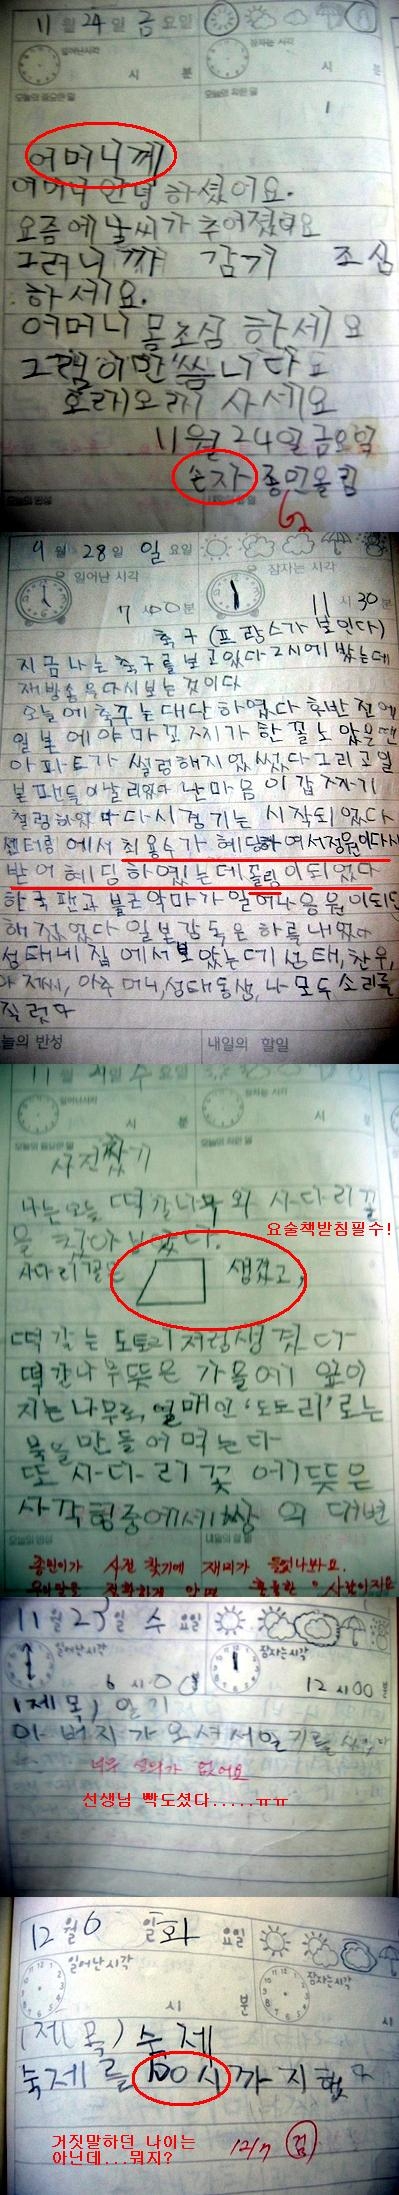 11 월 24 일 금 요일
일어난시각
잠자는 시각
시 분
시 분
오늘의 중요한 일
오늘의 착한 일
어머니께
어머니 안녕 하셨어요.
요즘에 날씨가 추어졌어요
그러니까 감기 조심
하세요.
어머니 몸조심 하세요
그럼 이만 씀니다
오래오래 사세요
11월 24일 금요일
손자 종민올림
9 월 28 일 일 요일
일어난 시각
잠자는 시각
7 시 00 분
11 시 30 분
축구 (프랑스가 보인다)
지금 나는 축구를 보고있다 2시에 봤는데
재방송을 다시보는 것이다
오늘에 축구는 대단하였다 후반전에
일본에 야마꼬찌가 한꼴 노았을땐
아파트가 썰렁해지었다 그리고 일
본 팬들이 날리였다 난 마음이 갑자기
철렁하였다 다시 경기는 시작되었다
센터링에서 최용수가 헤딩하여서정원이다시
받어 헤딩 하였는데 꼴링이되었다
한국팬과 붉은악마가 일어나 응원이되
해졌었다 일본감독은 화를내었다
성태네집에서 보았는데 성태, 찬우,
아저씨, 아주머니, 성태동생, 나 모두 소리를
질렀다
늘의 반성
내일의 할일
11 월 일 수 요일
일어난시각
잠자는 시각
시 분
시
사전찾기
나는 오늘 떡갈나무와 사다리꼴
을 찾아보았다.
요술책받침필수!
사다리꼴은 생겼고,
떡갈는 도토리처럼생겼다
떡갈나무뜻은 가을에 잎이
지는 나무로, 열매인 '도토리'로는
묵을 만들어 먹는다
또 사다리꼴에 뜻은
사각형중에서 한쌍의 대변
종민이가 사전 찾기에 재미가 들었나봐요.
11 월 23 일 수 요일
일어난시각
잠자는시각
6 시 00 분
12 시 00 분
(제목) 일기
아버지가 오셔서 일기를
너무 성의가 없어요
선생님 빡도셨다.....ㅠㅠ
12 월 6 일 화 요일
일어난 시각
잠자는 시각
시 분
시
(제목) 숙제
숙제를 100시까지 했다
거짓말하던 나이는
아닌데...뭐지?
12/7 검